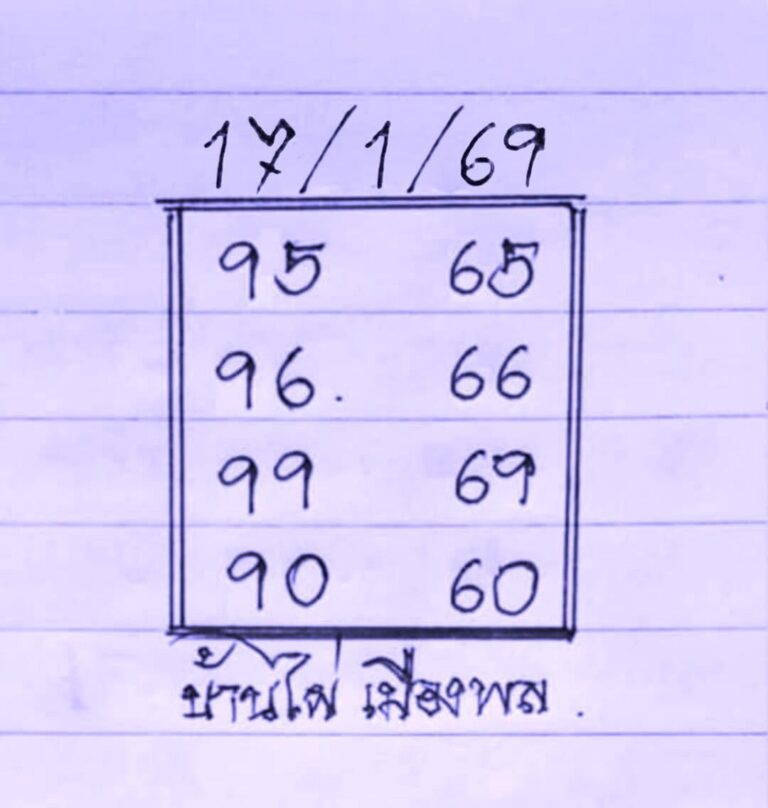 17/1/69
95 65
96. 66
99 69
90 60
บ้านไผ่ เมืองพล.